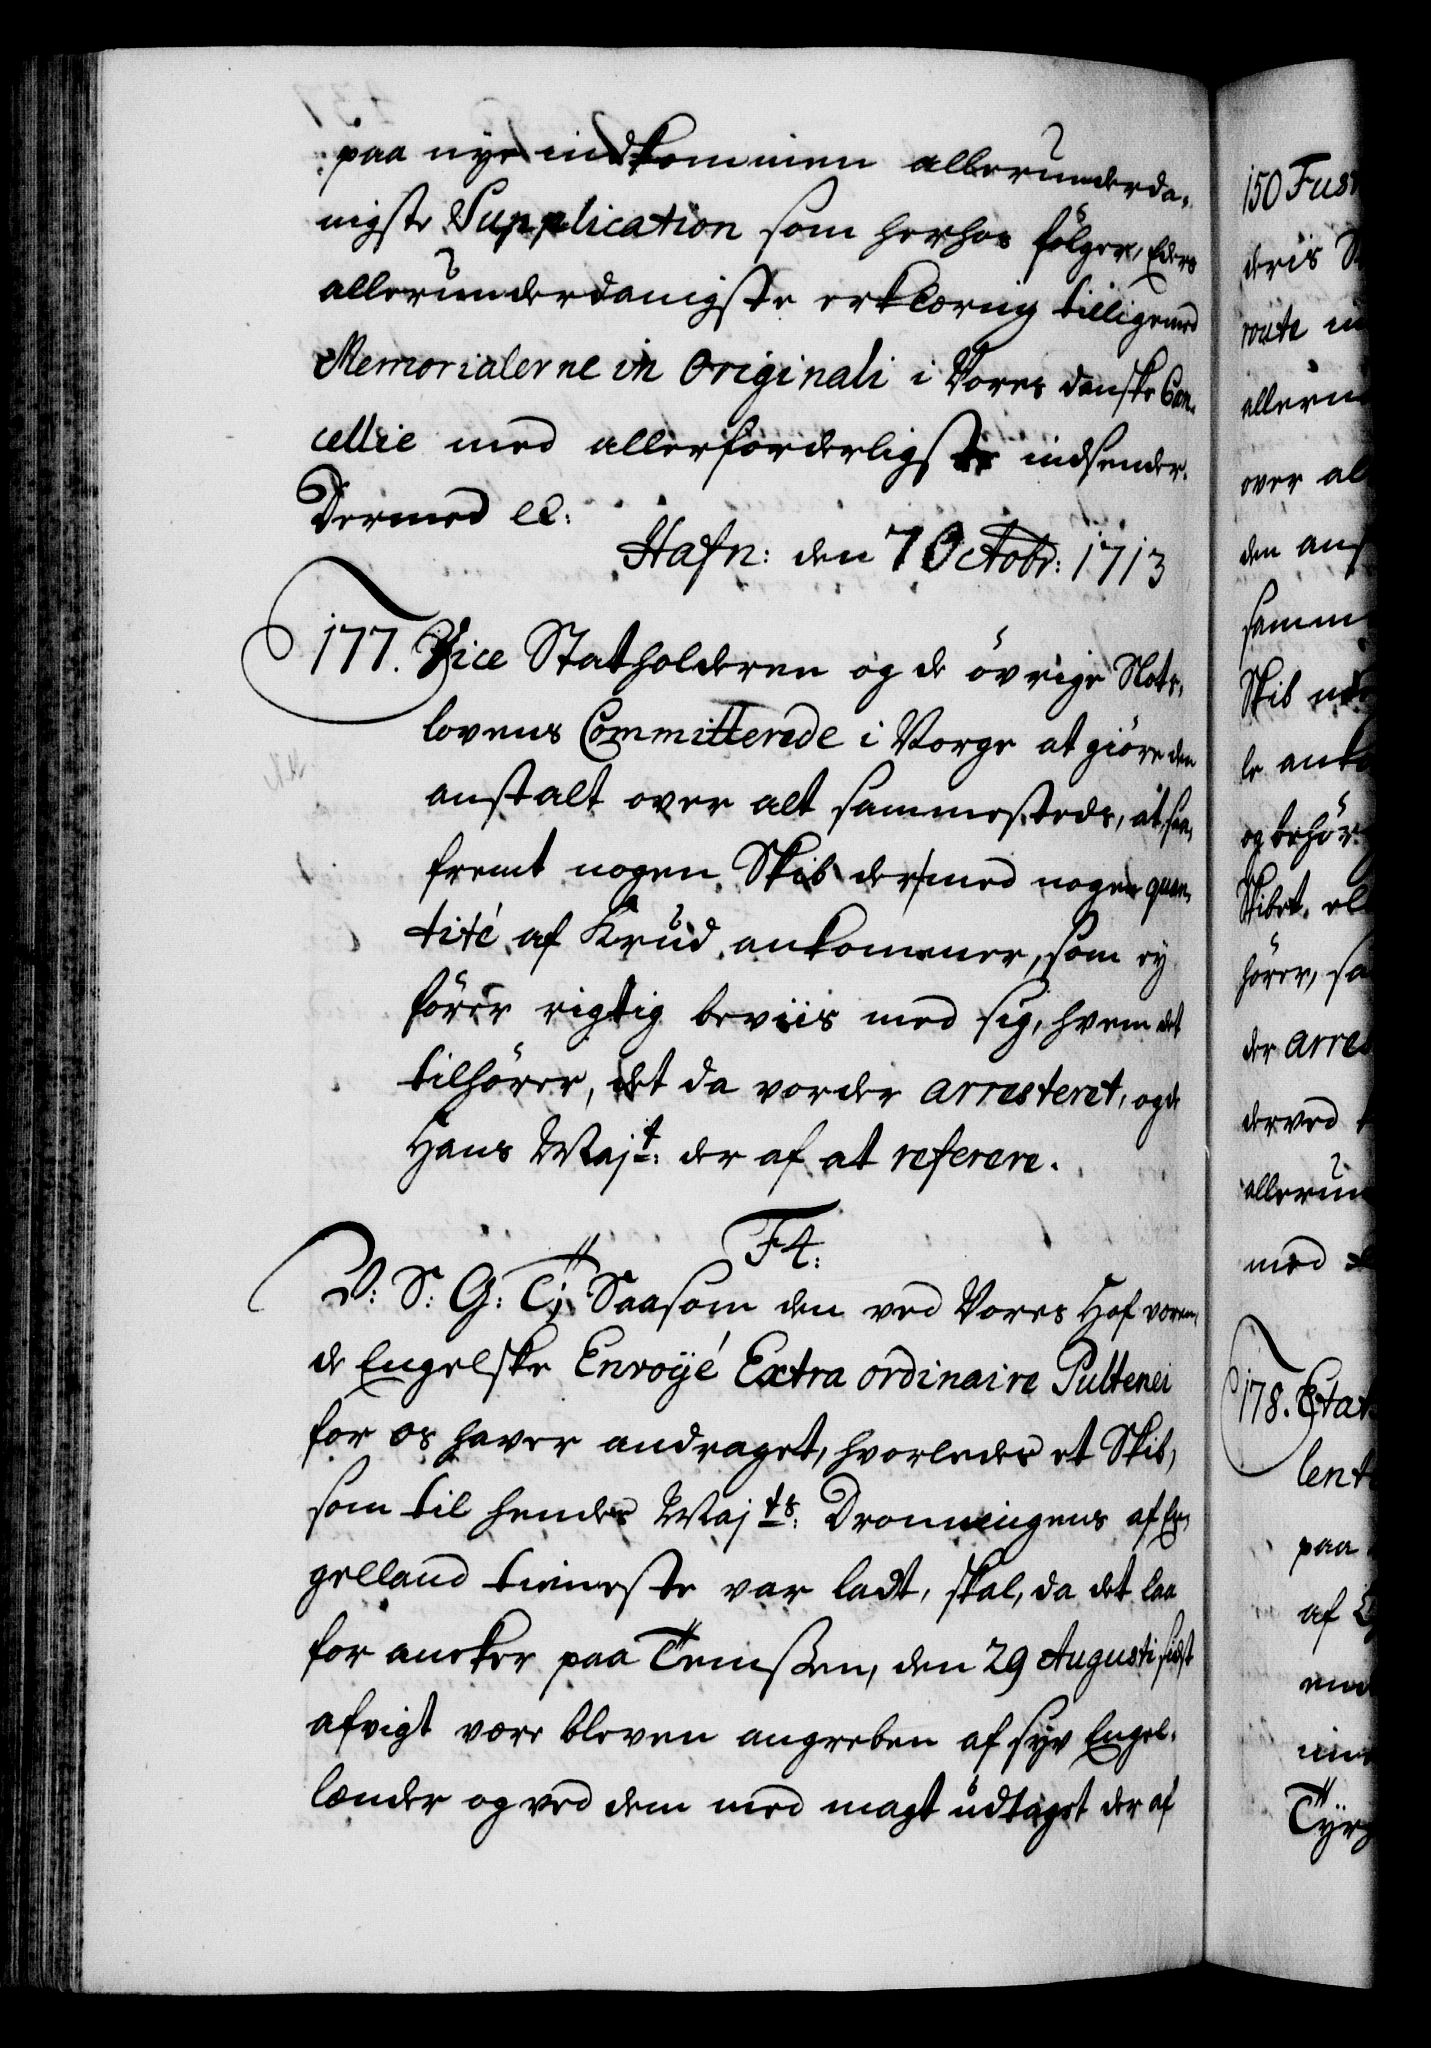 paa nye indkommen allerunderda¬
nigste Supplication som herhos fölger, Eders
allerunderdanigste erklæring tilligemed
Memorialerne in Originali i Vores danske Can¬
cellie med allerforderligste indsender.
Dermed etc:
Hafn: den 7 Octobr: 1713
177. Vice Statholderen og de övrige Slots¬
lovens Committerede i Norge at giöre den
anstalt over alt sammesteds, at saa¬
fremt nogen Skib der med nogen quan¬
tité af Krud ankommer, som ey
förer rigtig beviis med sig, hvem det
tilhörer, det da vorder arresteret, og de
Hans Majt: der af at referere.
F4:
V: S: G: T: Saasom den ved Vores Hof væren¬
de Engelske Envoyé Extra ordinaire Pultenei
for os haver andraget, hvorledes et Skib,
som til hendes Majts: Dronningens af En¬
gelland tieneste var ladt, skal, da det laa
for ancker paa Temsen, den 29 Augusti sidst
afvigt være bleven angreben af syv Engel¬
lænder og ved dem med magt udtaget der af
150 Fus
deris
route
allerun
over al
den
samm
Skib
le
og behör
Skibet
hörer, sa
der arres
derved
allerun
med
178. Etat
lent
paa
af
Tyr